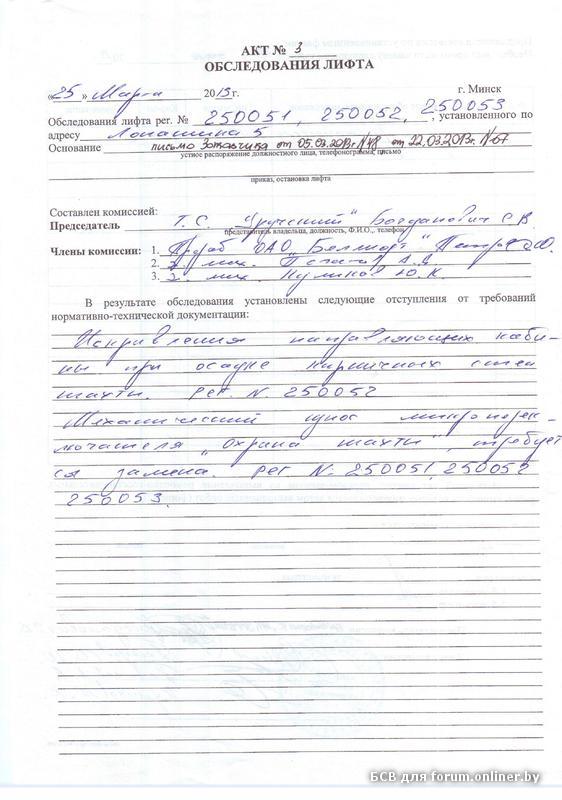 АКТ № 3
ОБСЛЕДОВАНИЯ ЛИФТА
«25» Марта 2013г. г. Минск
Обследования лифта рег. № 250051, 250052, 250053, установленного по
адресу Лопатина 5
Основание письмо Заказчика от 05.03.2013г. N48 от 22.03.2013г. N67
устное распоряжение должностного лица, телефонограмма, письмо
приказ, остановка лифта
Составлен комиссией:
Председатель Т.С. "Уручский" Богданович С.В.
представитель владельца, должность, Ф.И.О., телефон
Члены комиссии: 1. Прораб ОАО "Беллифт"
2. мех.
3. мех. Куликов Ю.К.
В результате обследования установлены следующие отступления от требований
нормативно-технической документации:
Искривления направляющих каби-
ны при осадке кирпичных стен
шахты. Рег. N. 250052
Механический износ микроперек-
лючателя "Охрана шахты", требует
ся замена. Рег N. 250051, 250052
250053.
БСВ для forum.onliner.by